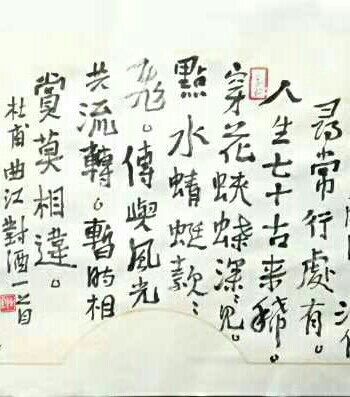 尋常行處有。
人生七十古來稀。
穿花蛺蝶深〻見。
點水蜻蜓款〻
飛。傳語風光
共流轉。暫时相
賞莫相違。
杜甫曲江對酒一首